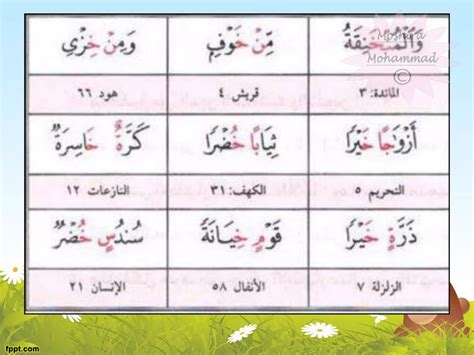 Moshira
Mohammad
©
وَٱلْمُنْخَنِقَةُ مِّنْ خَوْفٍ وَمِنْ خِزْىِ
المائدة: ٣ قريش ٤ هود ٦٦
أَزْوَٰجًا خَيْرًا ثِيَابًا خُضْرًا كَرَّةٌ خَاسِرَةٌ
التحريم ٥ الكهف: ٣١ النازعات ١٢
ذَرَّةٍ خَيْرًا قَوْمٍ خِيَانَةً سُندُسٍ خُضْرٌ
الزلزلة ٧ الأنفال ٥٨ الإنسان ٢١
fppt.com